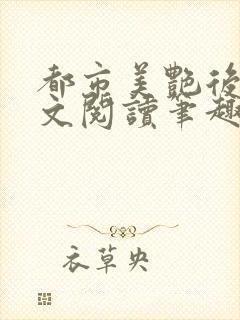 都市美艷後
文閱讀筆趣
衣草央